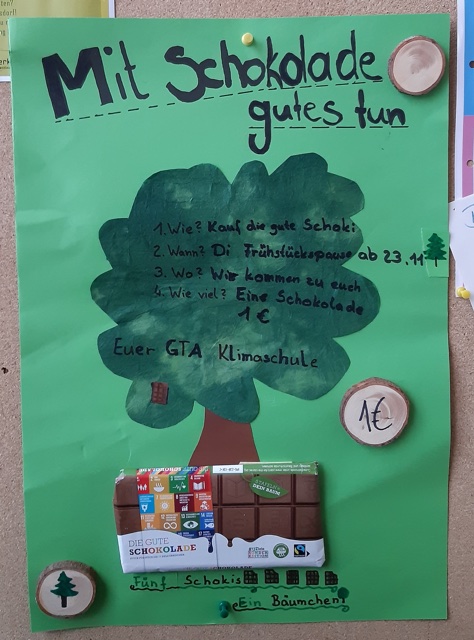 Mit Schokolade
gutes tun
1. Wie? Kauf die gute Schoki
2. Wann? Di Frühstückspause ab 23.11
3. Wo? Wir kommen zu euch
4. Wie viel? Eine Schokolade
1 €
Euer GTA Klimaschule
1€
DIE GUTE
SCHOKOLADE
Fünf Schokis
Ein Bäumchen